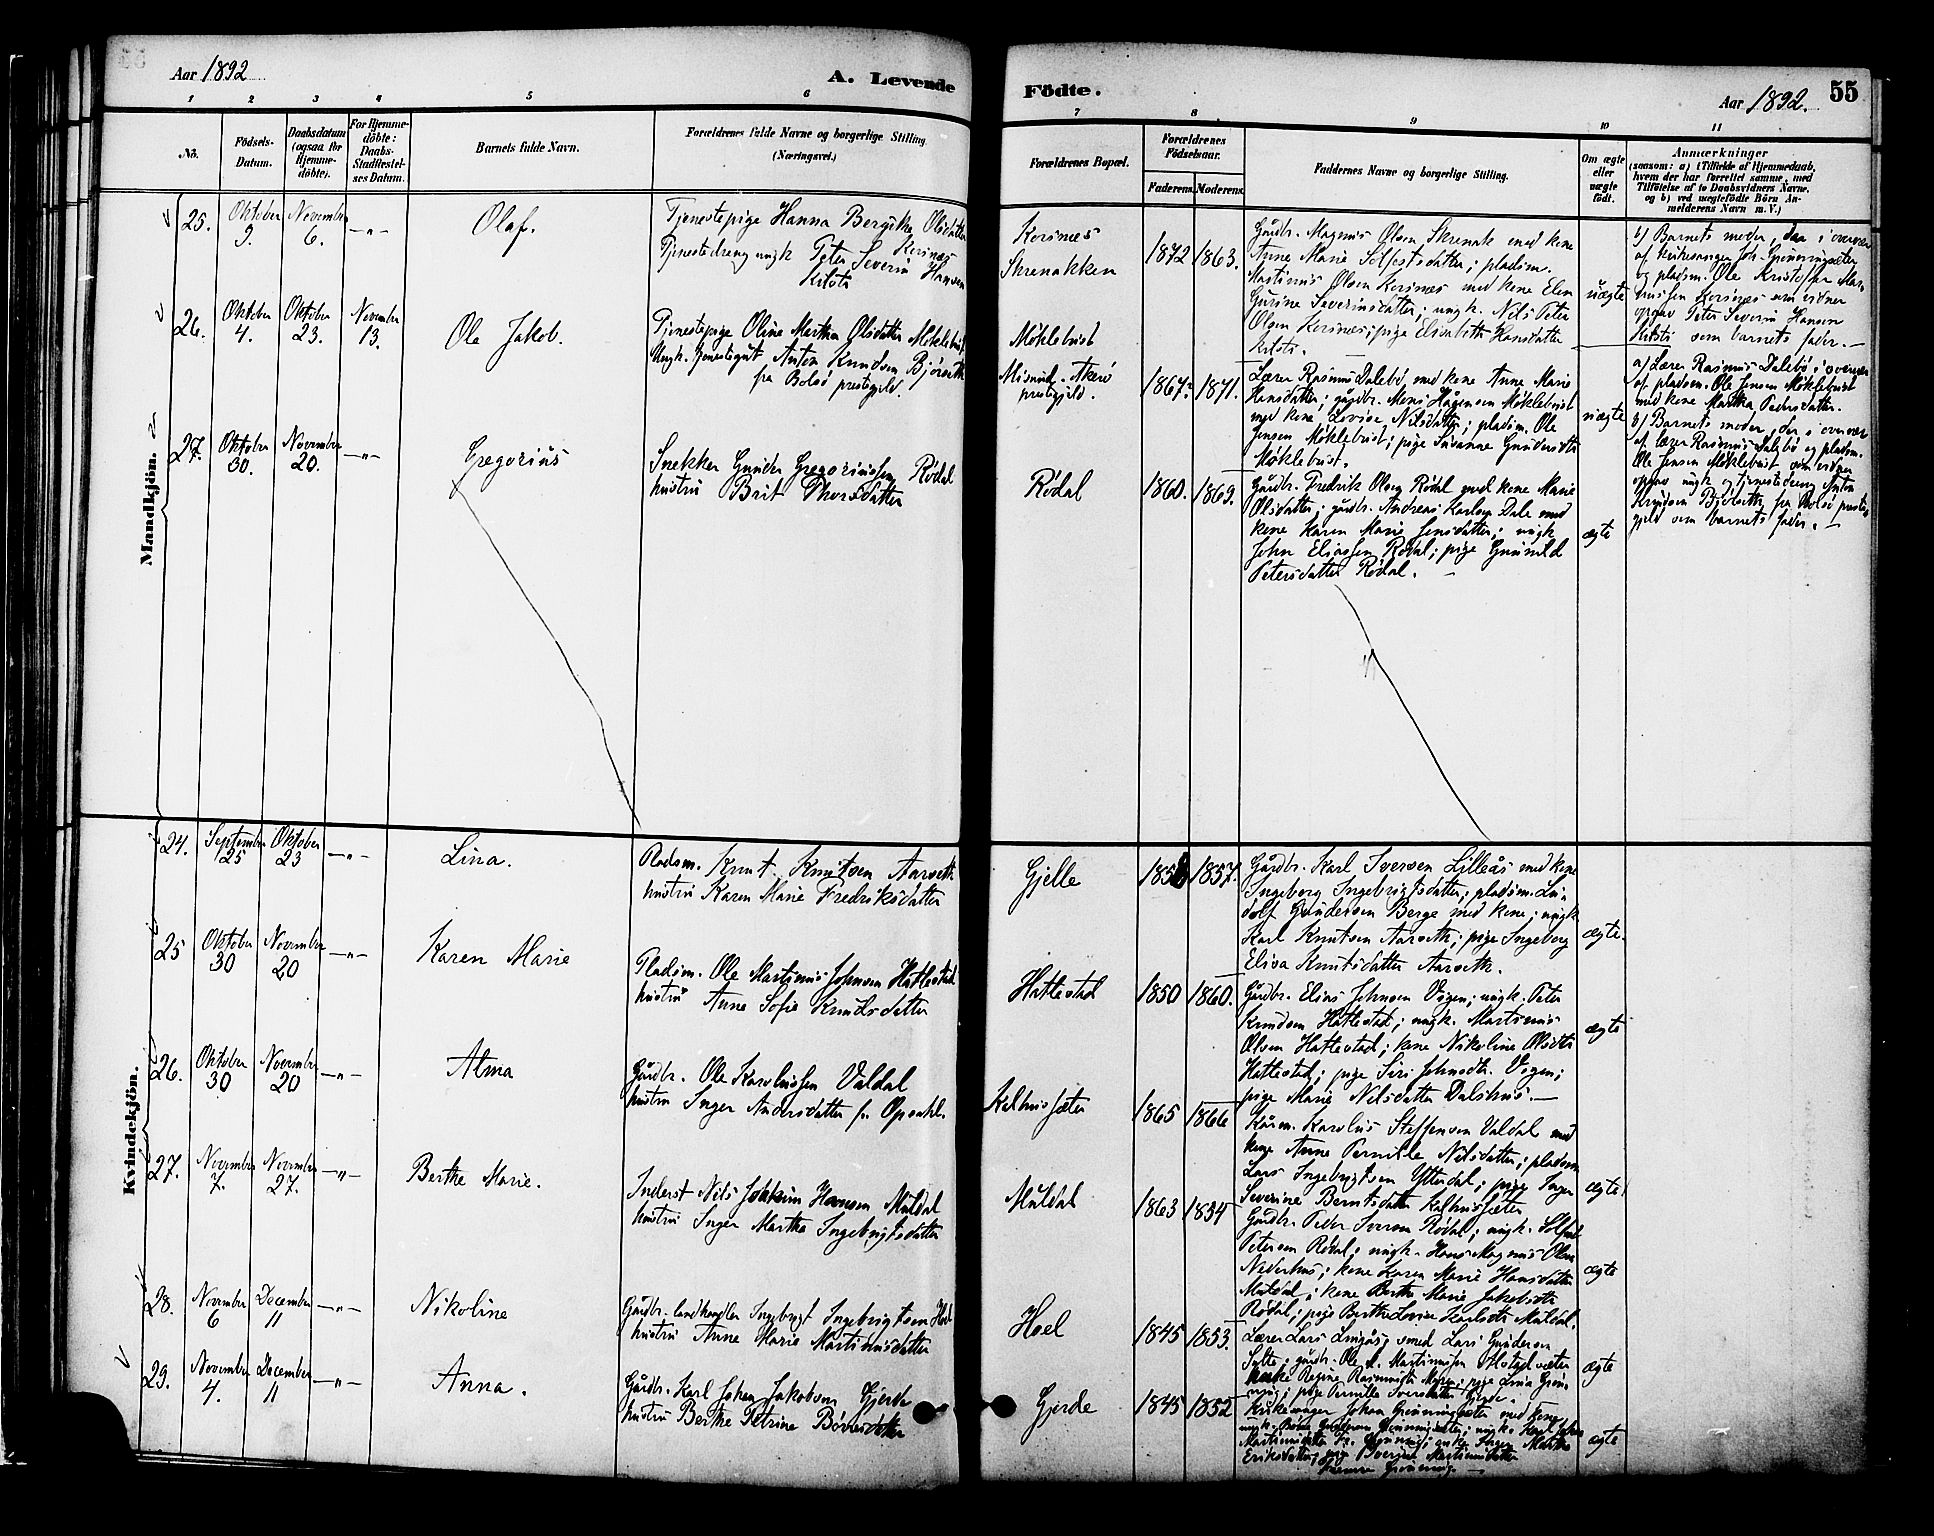 Aar 1892
A. Levende
Födte.
Aar 1892.
55
1 2 3 4 5 6 7 8 9 10 11
No.
Födsels-Datum.
Daabsdatum (ogsaa for Hjemmedöbte).
For Hjemmedöbte: Daabs-Stadfæstelses Datum.
Barnets fulde Navn.
Forældrenes fulde Navne og borgerlige Stilling (Næringsvei.)
Forældrenes Bopæl.
Forældrenes Födselsaar.
Faderens. Moderens.
Faddernes Navne og borgerlige Stilling.
Om ægte eller uægte födt.
Anmærkninger
(saasom: a) i Tilfælde af Hjemmedaab, hvem der har forrettet samme, med Tilföielse af to Daabsvidners Navne, og b) ved uægtefödte Börn Anmelderens Navn m. V.)
Mandkjön.
25.
Oktober 9.
November 6.
—„—
Olaf.
Tjenestepige Hanna Bergitha Olsdatter Korsnæs
Tjenestedreng ungk Peter Severin Hansen
Korsnæs
Skrenakken
1872 1863.
Gårdbr. Magnus Olsen Skrenak med kone
Anne Marie Solfestsdatter; pladsm.
Martinus Olsen Korsnæs med kone Elen
Gurine Severinsdatter; ungk. Nils Peter
Olsen Korsnæs; pige Elisabeth Hansdatter
uægte
b) Barnets moder, der i overvær
og pladsm. Ole Kristoffer Mar-
Korsnæs som vidner
opgav Peter Severin Hansen
som barnets fader. —
26.
Oktober 4.
Oktober 23.
November 13.
Ole Jakob.
Tjenestepige Oline Martha Olsdatter Möklebust
Ungk. tjenestegut Anton Knudsen Björseth
fra Bolsö prestegjeld.
Möklebust
Misund - Akerö
prestegjeld.
1867. 1871.
Lærer Rasmus Dalebö med kone Anne Marie
Hansdatter; gårdbr. Mons Hågensen Möklebust
med kone Lovise Nilsdatter; pladsm. Ole
Jensen Möklebust; pige Susanne Gundersdtr
Möklebust.
uægte
a) Lærer Rasmus Dalebö i overvær
af pladsm. Ole Jensen Möklebust
med kone Martha Pedersdatter.
b) Barnets moder, der i overvær
af lærer Rasmus Dalebö og pladsm.
Ole Jensen Möklebust som vidner
opgav ungk og tjenestedreng Anton
Knudsen Björseth fra Bolsö preste-
gjeld som barnets fader. —
27.
Oktober 30.
November 20.
—„—
Gregorius
Snekker Gunder Gregoriussen Rödal
hustru Brit Thorsdatter
Rödal
1860. 1869.
Gårdbr. Fredrik Olsen Rödal med kone Marie
Olsdatter; gårdbr. Andreas Karlsen Dale med
kone Karen Marie Jensdatter; ungk
John Eliassen Rödal; pige Gunhild
Petersdatter Rödal. —
ægte
Kvindekjön.
24.
September 25
Oktober 23
—„—
Lina.
Pladsm. Knut Knutsen Aarseth
hustru Karen Marie Fredriksdatter
Gjelle
1857.
Gårdbr. Karl Iversen Lilleås med kone
Ingeborg Ingebrigtsdatter; pladsm. Lu-
dolf Gundersen Berge med kone; ungk
Karl Knutsen Aarseth; pige Ingeborg
Elisa Knutsdatter Aarseth.
ægte.
25
Oktober 30
November 20
—„—
Karen Marie
Pladsm. Ole Martinus Johnsen Hattestad
hustru Anne Sofie Knudsdatter
Hattestad
1850 1860.
Gårdbr. Elias Johnsen Vigen; ungk. Peter
Knudsen Hattestad; ungk. Martinus
Olsen Hattestad; kone Nikoline Olsdtr
Hattestad; pige Siri Johnsdtr. Vigen;
pige Marie Nilsdatter Dalshus. —
ægte
26.
Oktober 30
November 20
—„—
Alma
Gårdbr. Ole Karolussen Valdal
hustru Inger Andersdatter fr. Opsahl.
Kalhussæter
1865 1866
Kårm. Karolus Steffensen Valdal med
kone Anne Pernille Nilsdatter; pladsm
Lars Ingebrigtsen Ytterdal; pige Inger
Severine Berntsdatter Kalhussæter
ægte
27.
November 7.
November 27.
—„—
Berthe Marie.
Inderst Nils Joakim Hansen Muldal
hustru Inger Martha Ingebrigtsdatter
Muldal
1863 1834
Gårdbr. Peder Iversen Rödal; ungk. Solfest
Petersen Rödal; ungk. Hans Magnus Olsen
Nederhus; kone Karen Marie Hansdatter
Muldal; kone Berthe Marie Jakobsdtr
Rödal; pige Berthe Lovise Karlsdtr Muldal.
ægte
28.
November 6
December 11
—„—
Nikoline
Gårdbr. landhandler Ingebrigt Ingebrigtsen Hoel
hustru Anne Marie Martinusdatter
Hoel
1845 1853.
Lærer Lars Lingås; smed Lars Gundersen
gårdbr. Ole A. Martinussen
pige Pernille Iversdatter Gjerde.
ægte
29.
November 4.
December 11
—„—
Anna.
Gårdbr. Karl Johan Jakobsen Gjerde
hustru Berthe Petrine Börresdatter
Gjerde
1845 1852
Kirkesanger Johan Grönningsæter med kone;
ægte